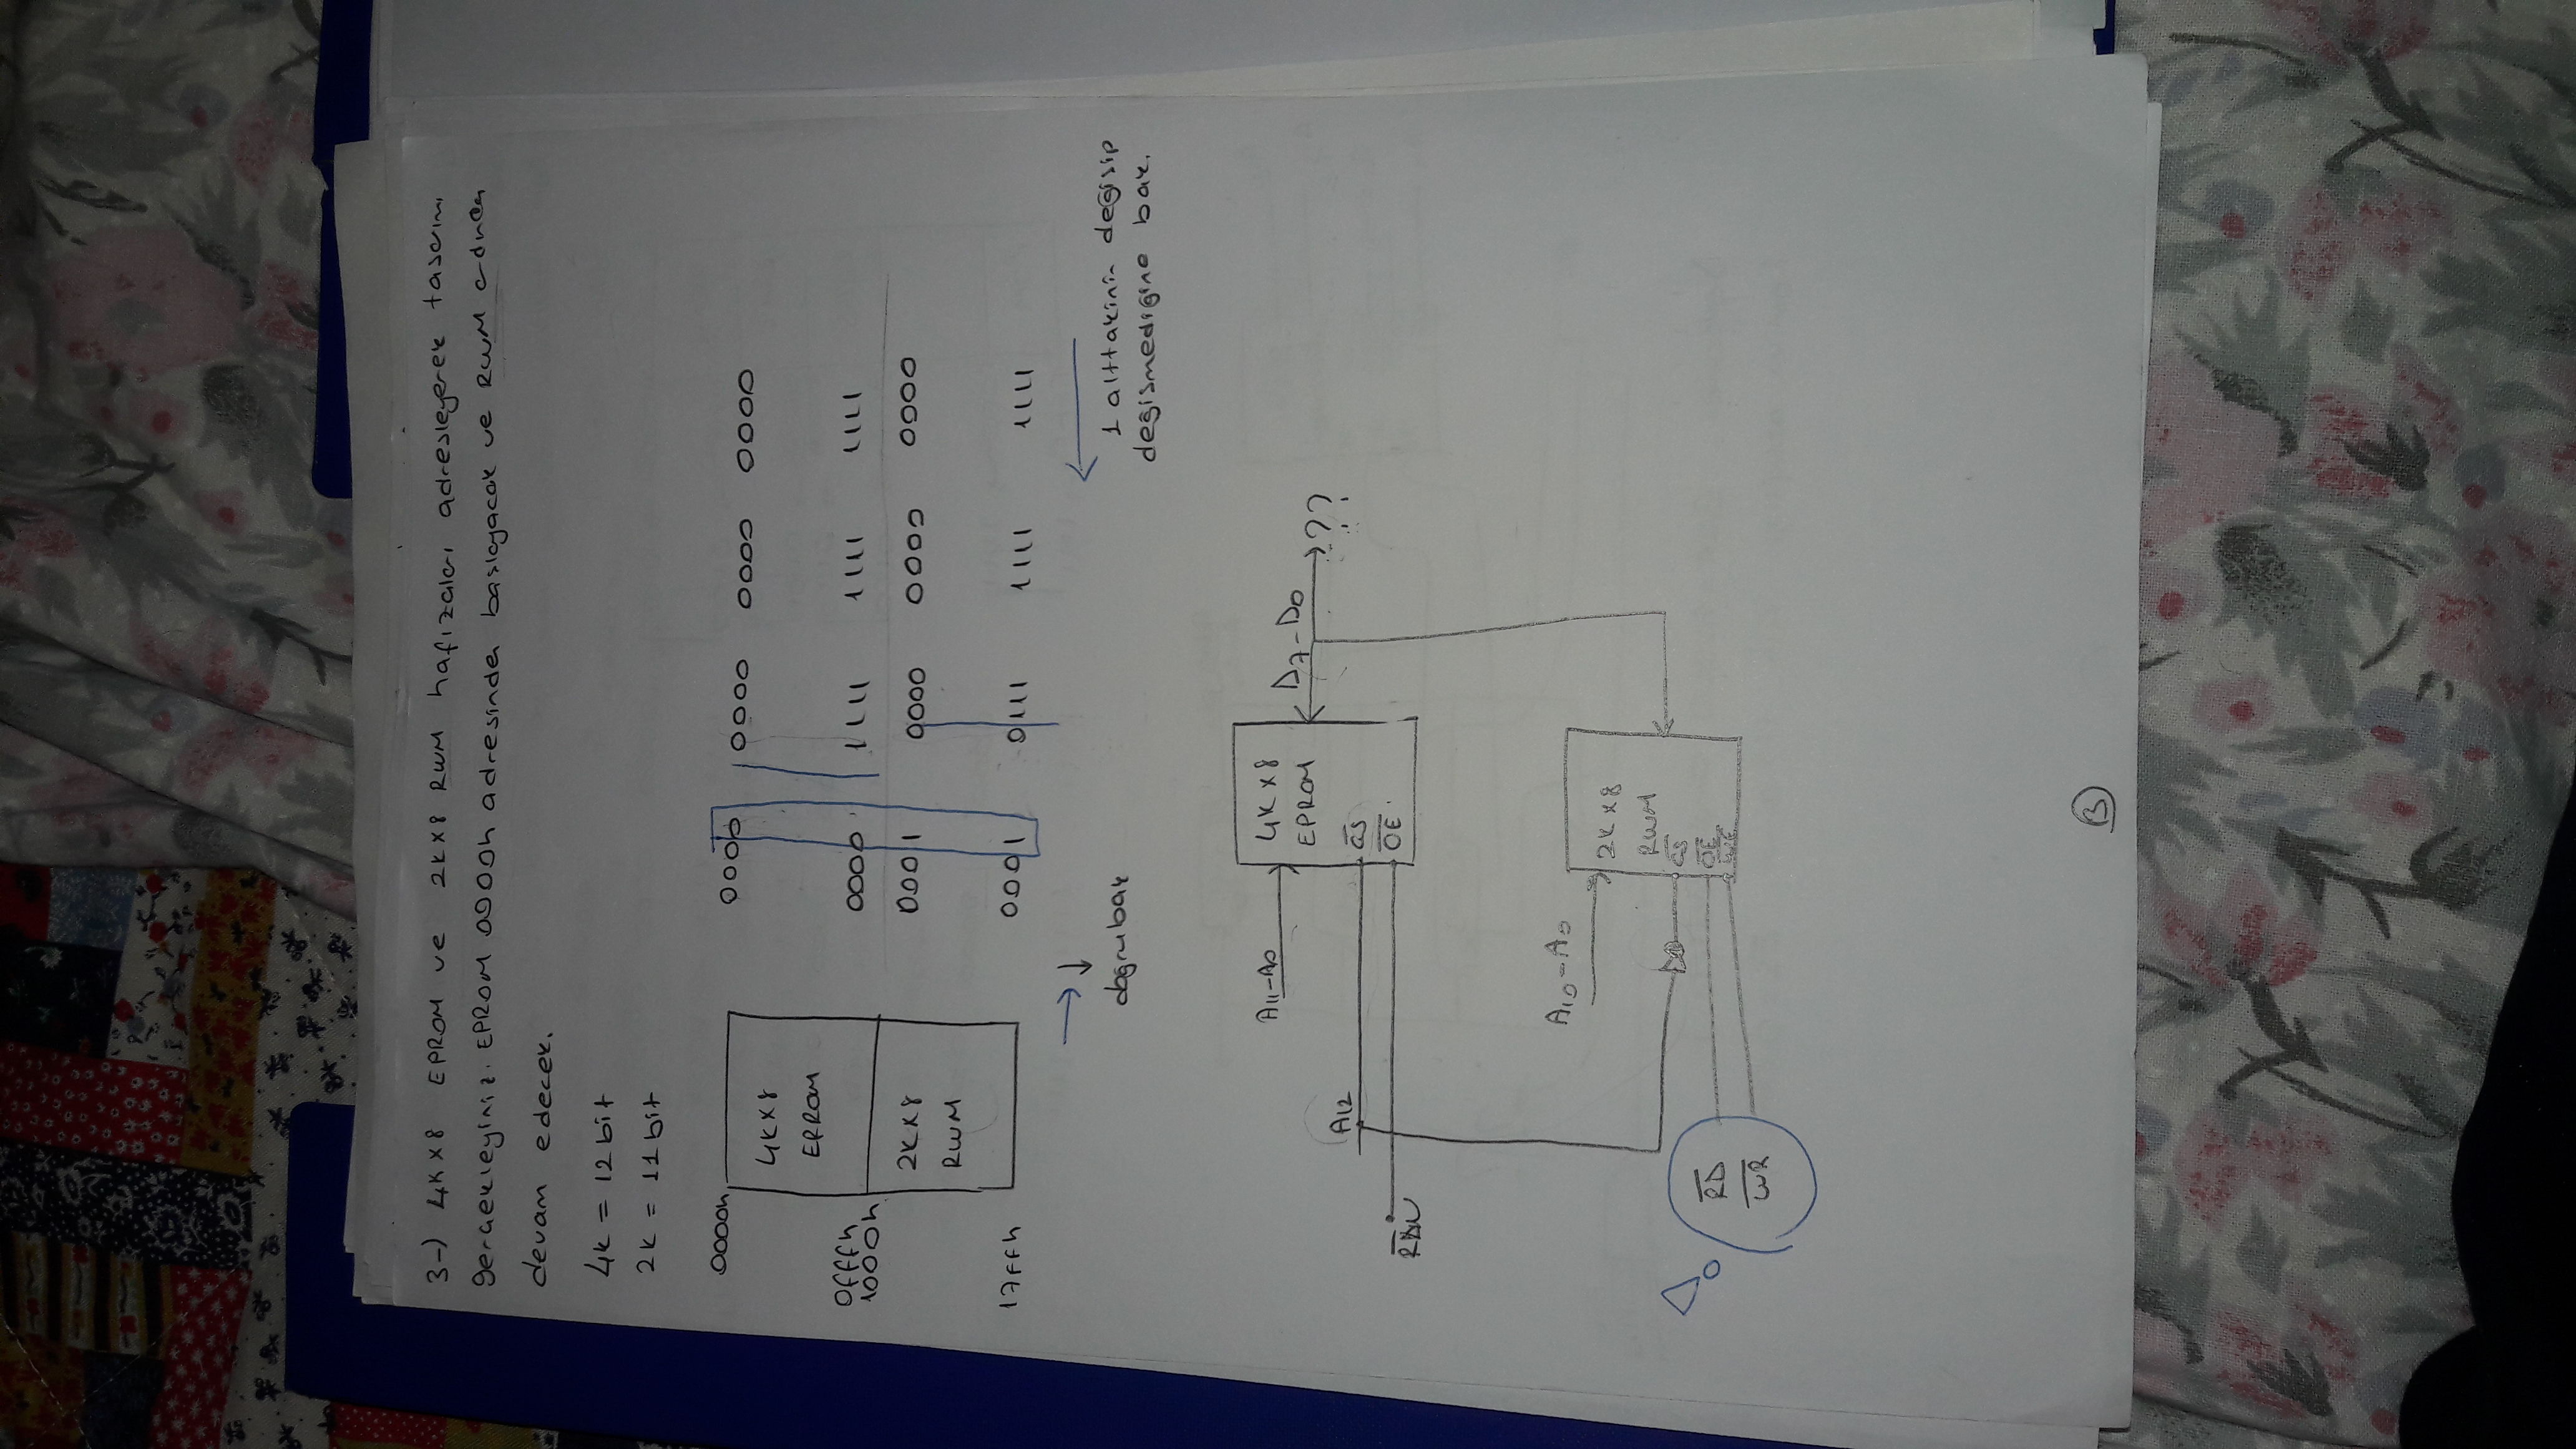 3-) 4K×8 EPROM ve 2K×8 RWM hafızaları adresleyerek tasarımı
gerçekleyiniz. EPROM 0000h adresinden başlayacak ve RWM ardından
devam edecek.
4k = 12 bit
2k = 11 bit
0000h
4K×8
EPROM
0fffh
1000h
2K×8
RWM
17ffh
0000 0000 0000 0000
0000 1111 1111 1111
0001 0000 0000 0000
0001 0111 1111 1111
→ ↓
doğru bak
←
1 alttakinin değişip
değişmediğine bak.
A11-A0
4K×8
EPROM
D7-D0
??
A12
CS
OE
A10-A0
2K×8
RWM
CS
OE
WE
RD
WR
3